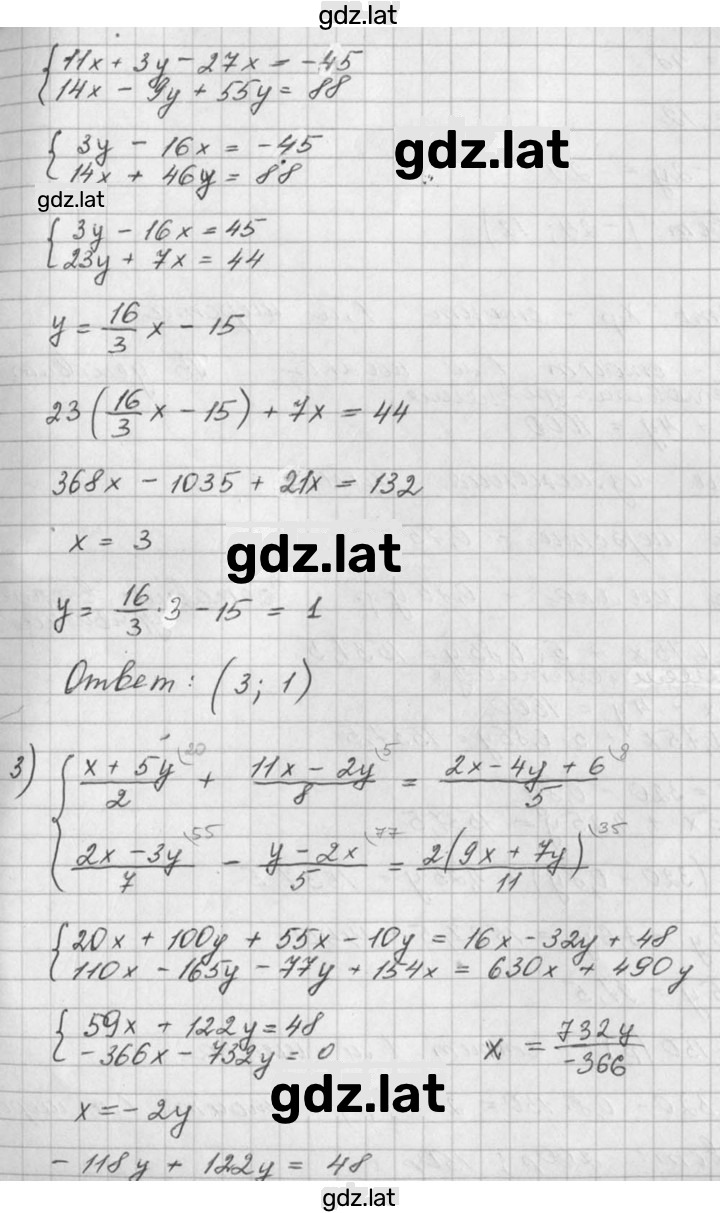 gdz.lat
{ 11x + 3y - 27x = -45
14x - 9y + 55y = 88
{ 3y - 16x = -45
14x + 46y = 88
gdz.lat
gdz.lat
{ 3y - 16x = 45
23y + 7x = 44
y = 16/3 x - 15
23(16/3 x - 15) + 7x = 44
368x - 1035 + 21x = 132
x = 3
gdz.lat
y = 16/3 · 3 - 15 = 1
Ответ: (3; 1)
3) { (x + 5y)/2 \20 + (11x - 2y)/8 \5 = (2x - 4y + 6)/5 \8
(2x - 3y)/7 \55 - (y - 2x)/5 \77 = 2(9x + 7y)/11 \35
{ 20x + 100y + 55x - 10y = 16x - 32y + 48
110x - 165y - 77y + 154x = 630x + 490y
{ 59x + 122y = 48
-366x - 732y = 0
x = 732y/-366
gdz.lat
x = -2y
-118y + 122y = 48
gdz.lat